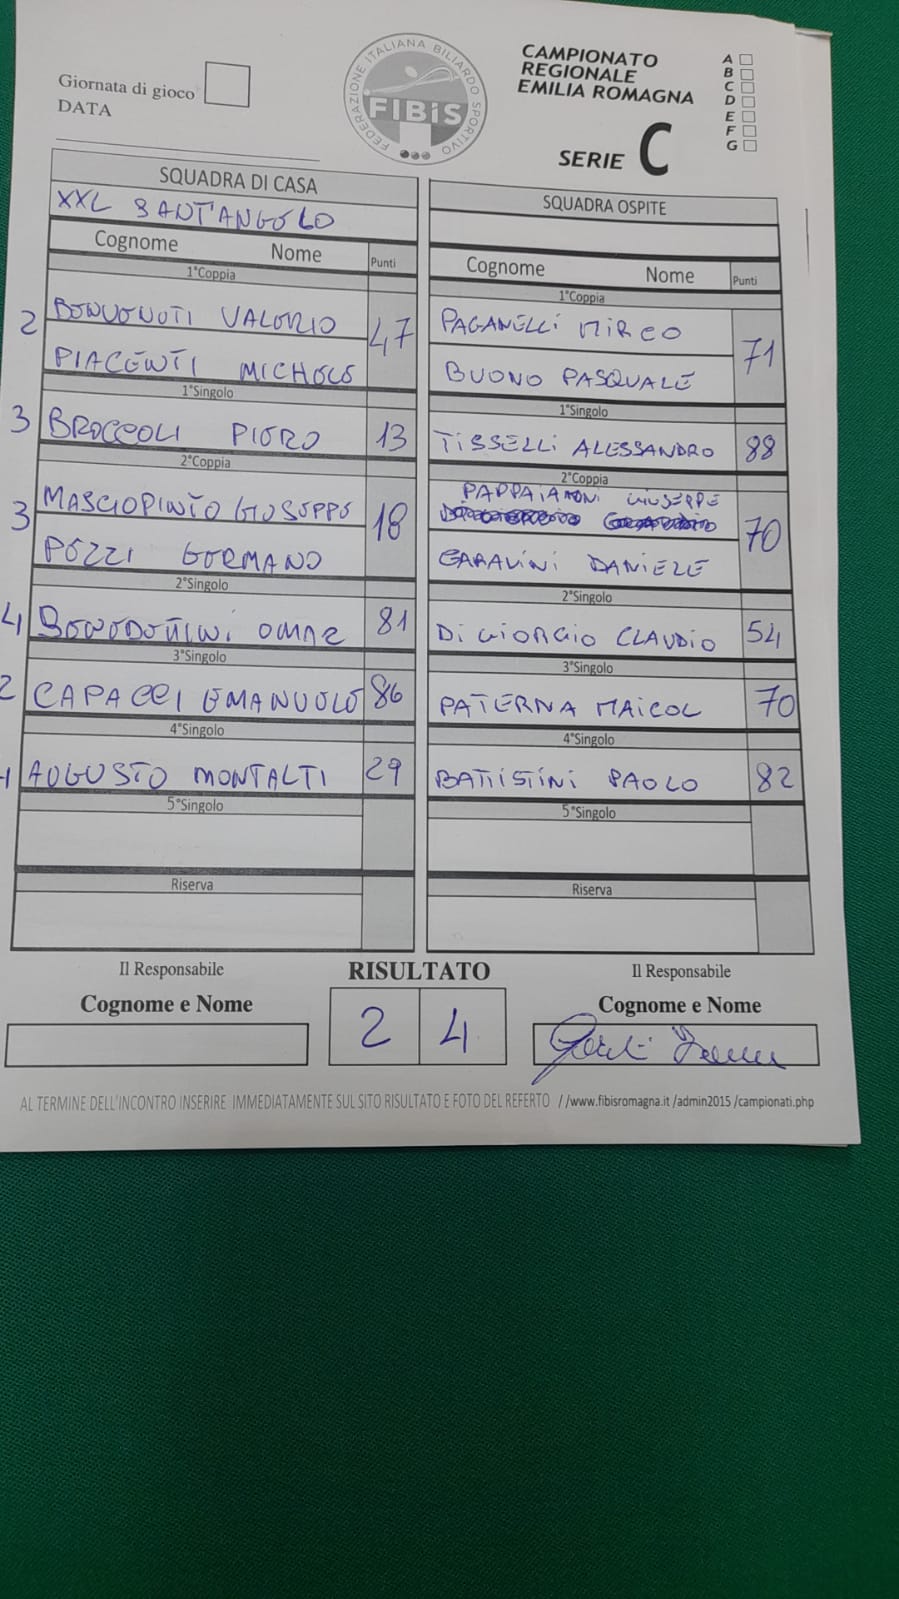 Giornata di gioco
DATA
FEDERAZIONE ITALIANA BILIARDO SPORTIVO
FIBiS
CAMPIONATO
REGIONALE
EMILIA ROMAGNA
SERIE C
A
B
C
D
E
F
G
SQUADRA DI CASA
XXL SANT'ANGOLO
Cognome Nome Punti
1°Coppia
2 BONVONUTI VALORIO 47
PIACENTI MICHOLO
1°Singolo
3 BROCCOLI PIORO 13
2°Coppia
3 MASCIOPINTO GIUSOPPO 18
POZZI GORMANO
2°Singolo
4 BONODOTTINI OMAR 81
3°Singolo
2 CAPACCI OMANUOLO 86
4°Singolo
1 AUGUSTO MONTALTI 29
5°Singolo
Riserva
SQUADRA OSPITE
Cognome Nome Punti
1°Coppia
PAGANELLI MIRCO 71
BUONO PASQUALE
1°Singolo
TISSELLI ALESSANDRO 88
2°Coppia
PAPPAIANNI GIUSEPPE 70
GARAVINI DANIELE
2°Singolo
DI GIORGIO CLAUDIO 54
3°Singolo
PATERNA MAICOL 70
4°Singolo
BATTISTINI PAOLO 82
5°Singolo
Riserva
Il Responsabile
Cognome e Nome
RISULTATO
2 4
Il Responsabile
Cognome e Nome
AL TERMINE DELL'INCONTRO INSERIRE IMMEDIATAMENTE SUL SITO RISULTATO E FOTO DEL REFERTO //www.fibisromagna.it /admin2015 /campionati.php